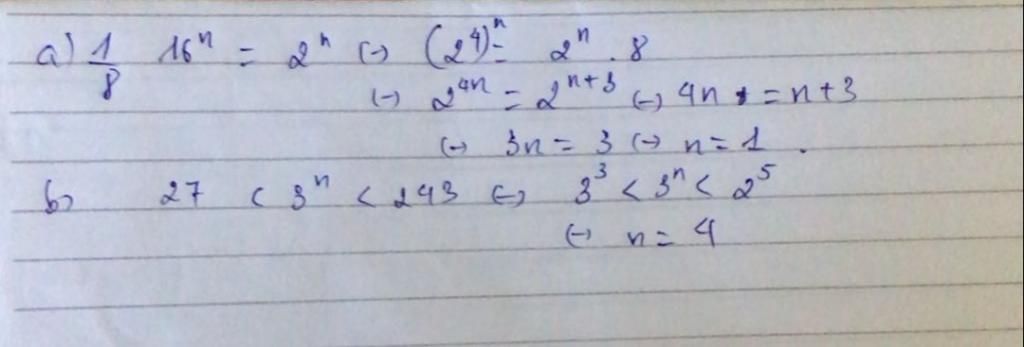 a) 1/8 16^n = 2^n (-) (2^4)^n = 2^n . 8
(-) 2^4n = 2^n+3 (-) 4n = n+3
(-) 3n = 3 (-) n = 1 .
b) 27 < 3^n < 243 (-) 3^3 < 3^n < 2^5
(-) n = 4